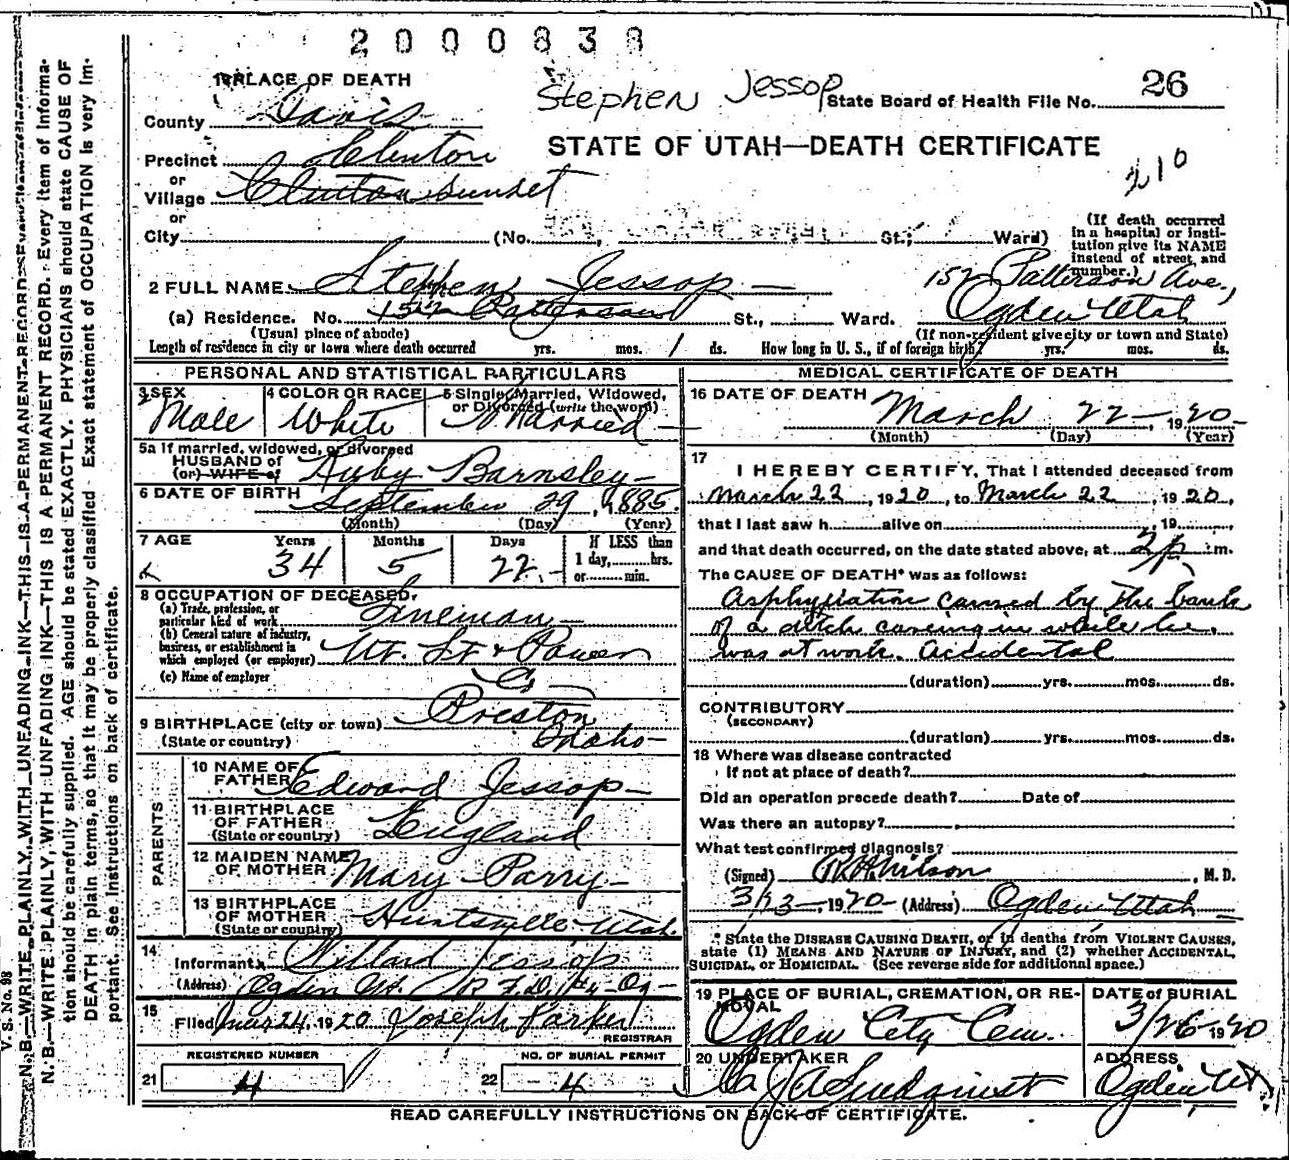 2000838
1 PLACE OF DEATH
Stephen Jessop
State Board of Health File No. 26
County Davis
STATE OF UTAH—DEATH CERTIFICATE
Precinct Clinton
210
or
Village Clinton Sunset
or
City (No. St.; Ward)
(If death occurred in a hospital or institution give its NAME instead of street and number.)
2 FULL NAME Stephen Jessop
152 Patterson Ave.,
(a) Residence. No. 152 Patterson St., Ward. Ogden Utah
(Usual place of abode)
(If non-resident give city or town and State)
Length of residence in city or town where death occurred yrs. mos. 1 ds. How long in U. S., if of foreign birth? yrs. mos. ds.
PERSONAL AND STATISTICAL PARTICULARS
3 SEX Male
4 COLOR OR RACE White
5 Single, Married, Widowed, or Divorced (write the word) Married
5a If married, widowed, or divorced
HUSBAND of
(or) WIFE of Ruby Barnsley
6 DATE OF BIRTH September 29, 1885
(Month) (Day) (Year)
7 AGE Years 34 Months 5 Days 22
If LESS than 1 day, hrs. or min.
8 OCCUPATION OF DECEASED
(a) Trade, profession, or particular kind of work Lineman
(b) General nature of industry, business, or establishment in which employed (or employer) Ut. Lt & Power Co
(c) Name of employer
9 BIRTHPLACE (city or town) Preston
(State or country) Idaho
PARENTS
10 NAME OF FATHER Edward Jessop
11 BIRTHPLACE OF FATHER (State or country) England
12 MAIDEN NAME OF MOTHER Mary Parry
13 BIRTHPLACE OF MOTHER (State or country) Huntsville Utah
14 Informant Willard Jessop
(Address) Ogden Ut. R.F.D.
15 Filed Mar 24, 1920 Joseph Parker
REGISTRAR
REGISTERED NUMBER
21 4
NO. OF BURIAL PERMIT
22 4
MEDICAL CERTIFICATE OF DEATH
16 DATE OF DEATH
March 22, 1920
(Month) (Day) (Year)
17
I HEREBY CERTIFY, That I attended deceased from
March 22, 1920, to March 22, 1920,
that I last saw h alive on , 19 ,
and that death occurred, on the date stated above, at 2 p m.
The CAUSE OF DEATH* was as follows:
Asphyxiation caused by the bank
of a ditch caveing in while he
was at work. Accidental
(duration) yrs. mos. ds.
CONTRIBUTORY
(SECONDARY)
(duration) yrs. mos. ds.
18 Where was disease contracted
If not at place of death?
Did an operation precede death? Date of
Was there an autopsy?
What test confirmed diagnosis?
(Signed) R H Wilson, M. D.
3/23, 1920 (Address) Ogden Utah
* State the DISEASE CAUSING DEATH, or in deaths from VIOLENT CAUSES,
state (1) MEANS AND NATURE OF INJURY, and (2) whether ACCIDENTAL,
SUICIDAL, or HOMICIDAL. (See reverse side for additional space.)
19 PLACE OF BURIAL, CREMATION, OR REMOVAL
Ogden City Cem.
DATE of BURIAL
3/26 1920
20 UNDERTAKER
ADDRESS
Ogden Ut
READ CAREFULLY INSTRUCTIONS ON BACK OF CERTIFICATE.
V. S. No. 98
N. B.—WRITE PLAINLY, WITH UNFADING INK—THIS IS A PERMANENT RECORD. Every item of information should be carefully supplied. AGE should be stated EXACTLY. PHYSICIANS should state CAUSE OF DEATH in plain terms, so that it may be properly classified. Exact statement of OCCUPATION is very important. See instructions on back of certificate.